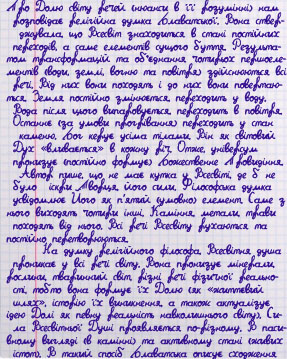 Про Долю світу речей інакше в її розумінні нам
розповідає релігійна думка Блаватської. Вона ствер-
джувала, що Всесвіт знаходиться в стані постійних
переходів, а саме елементів сущого буття. Результа-
том трансформацій та об'єднання чотирьох першоеле-
ментів (води, землі, вогню та повітря) здійснюються всі
речі. Від них вони походять і до них вони повертаю-
ться. Земля постійно змінюється, переходить у воду.
Вода після цього випаровується, переходить в повітря.
Останнє (за умови прогрівання) переходить у стан
каменю, його керує усіма тілами. Він як світовий
Дух "вливається" в кожну річ. Отже, універсум
пронизує (постійно формує) Божественне Провидіння.
Автор пише, що не має кутка у Всесвіті, де б не
було іскри Творця, його сили. Філософська думка
усвідомлює Його як п'ятий (умовно) елемент. Саме з
нього виходять чотири інші. Каміння, метали, трави
походять від нього. Всі речі Всесвіту рухаються та
постійно перетворюються.
На думку релігійного філософа, Всесвітня душа
проникає у всі речі світу. Вона пронизує мінерали,
рослини, тваринний світ, різні речі фізичної реально-
сті, тобто вона формує їх Долю (як "життєвий
шлях", історію їх виникнення, а також актуалізує
ідею Долі як певну реальність навколишнього світу). Си-
ла Всесвітньої Душі проявляється по-різному. В паси-
вному вигляді (в камінні) та активному стані (живих
істот). В такий спосіб Блаватська описує сходження